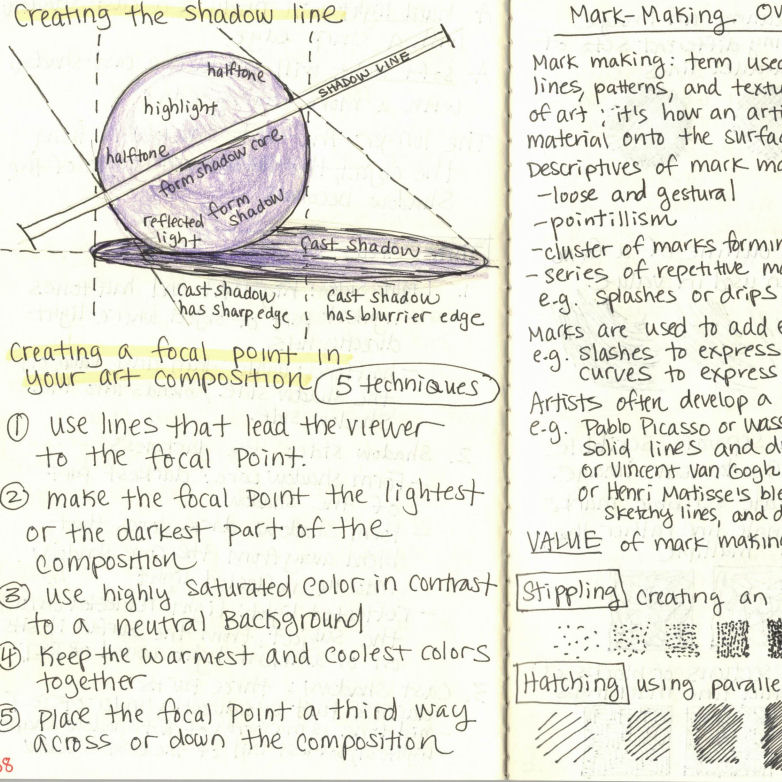 Creating the shadow line
halftone
SHADOW LINE
highlight
halftone
form shadow core
form
shadow
reflected
light
Cast shadow
cast shadow
has sharp edge
cast shadow
has blurrier edge
Creating a focal point in
your art composition
5 techniques
① use lines that lead the viewer
to the focal point.
② make the focal point the lightest
or the darkest part of the
composition
③ use highly saturated color in contrast
to a neutral Background
④ Keep the warmest and coolest colors
together
⑤ Place the focal point a third way
across or down the composition
Mark-Making
Mark making: term used
lines, patterns, and
of art : it's how an
material onto the
Descriptives of mark
-loose and gestural
-pointillism
-cluster of marks
-series of repetitive
e.g. splashes or drips
Marks are used to add
e.g. slashes to express
curves to express
Artists often develop a
e.g. Pablo Picasso or
Solid lines and
or Vincent Van Gogh
or Henri Matisse's
sketchy lines, and
VALUE of mark making
Stippling creating an
Hatching using